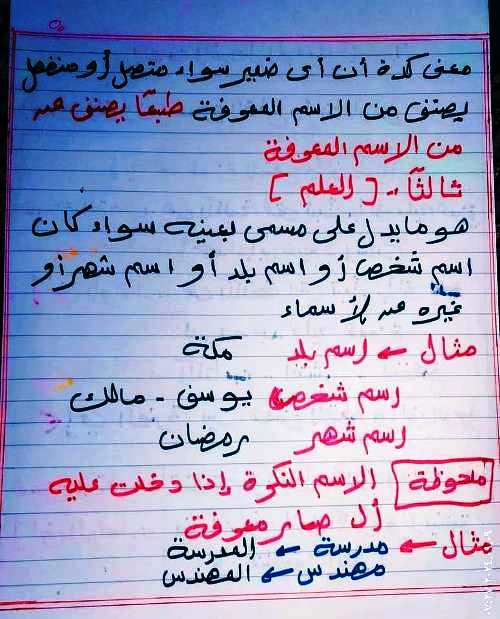 معنى كدة أن أى ضمير سواء متصل أو منفصل
يصنف من الاسم المعرفة طبعًا يصنف من
من الاسم المعرفة
ثالثًا:- [العلم]
هو ما يدل على مسمى بعينه سواء كان
اسم شخص أو اسم بلد أو اسم شهر أو
غيره من الأسماء
مثال ← اسم بلد مكة
اسم شخص يوسف - مالك
اسم شهر رمضان
ملحوظة الاسم النكرة إذا دخلت عليه
أل صار معرفة
مثال ← مدرسة ← المدرسة
مهندس ← المهندس